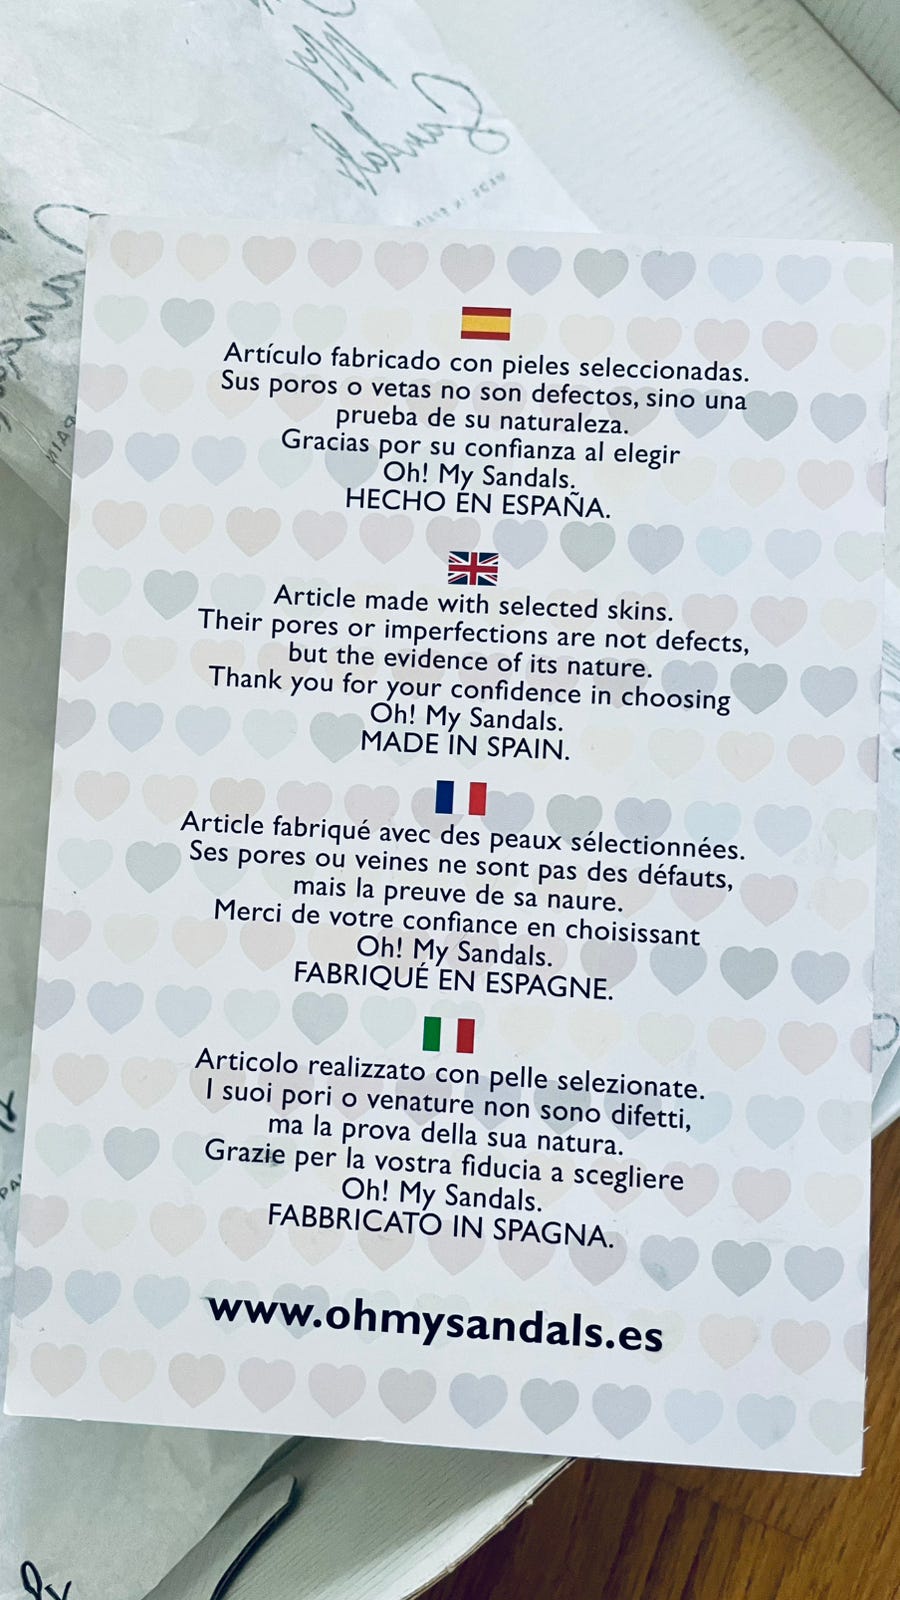 MADE IN SPAIN
Artículo fabricado con pieles seleccionadas.
Sus poros o vetas no son defectos, sino una
prueba de su naturaleza.
Gracias por su confianza al elegir
Oh! My Sandals.
HECHO EN ESPAÑA.
Article made with selected skins.
Their pores or imperfections are not defects,
but the evidence of its nature.
Thank you for your confidence in choosing
Oh! My Sandals.
MADE IN SPAIN.
Article fabriqué avec des peaux sélectionnées.
Ses pores ou veines ne sont pas des défauts,
mais la preuve de sa naure.
Merci de votre confiance en choisissant
Oh! My Sandals.
FABRIQUÉ EN ESPAGNE.
Articolo realizzato con pelle selezionate.
I suoi pori o venature non sono difetti,
ma la prova della sua natura.
Grazie per la vostra fiducia a scegliere
Oh! My Sandals.
FABBRICATO IN SPAGNA.
www.ohmysandals.es